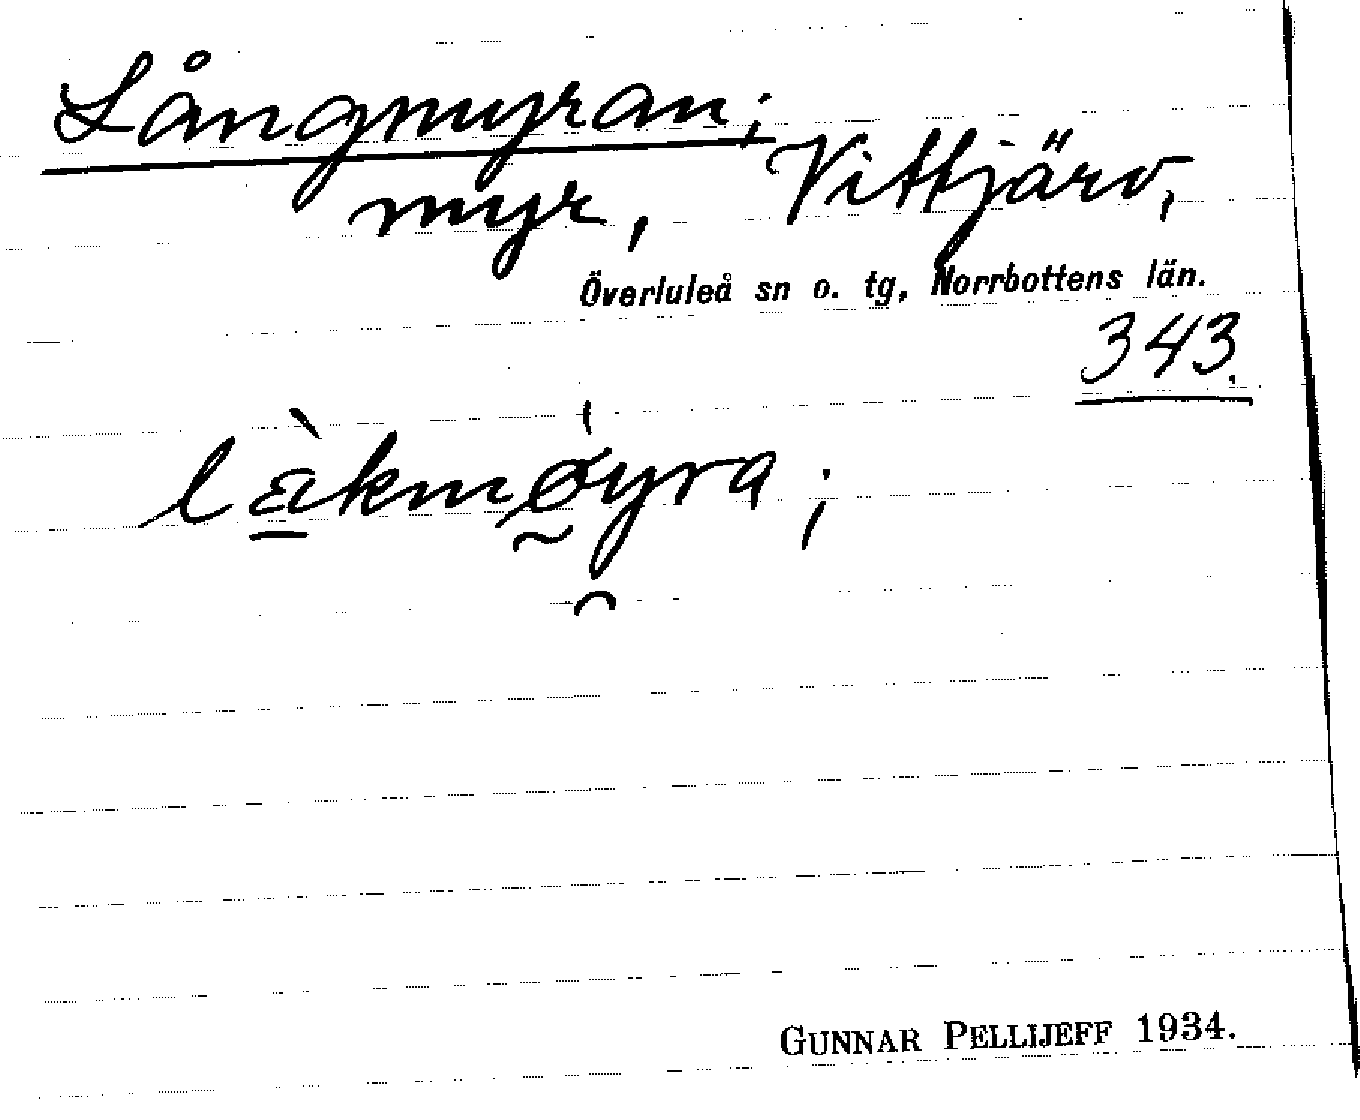 Långmyran;
myr, Vittjärv,
Överluleå sn o. tg, Norrbottens län.
343.
là̱kmǿ̰yra;
GUNNAR PELLIJEFF 1934.